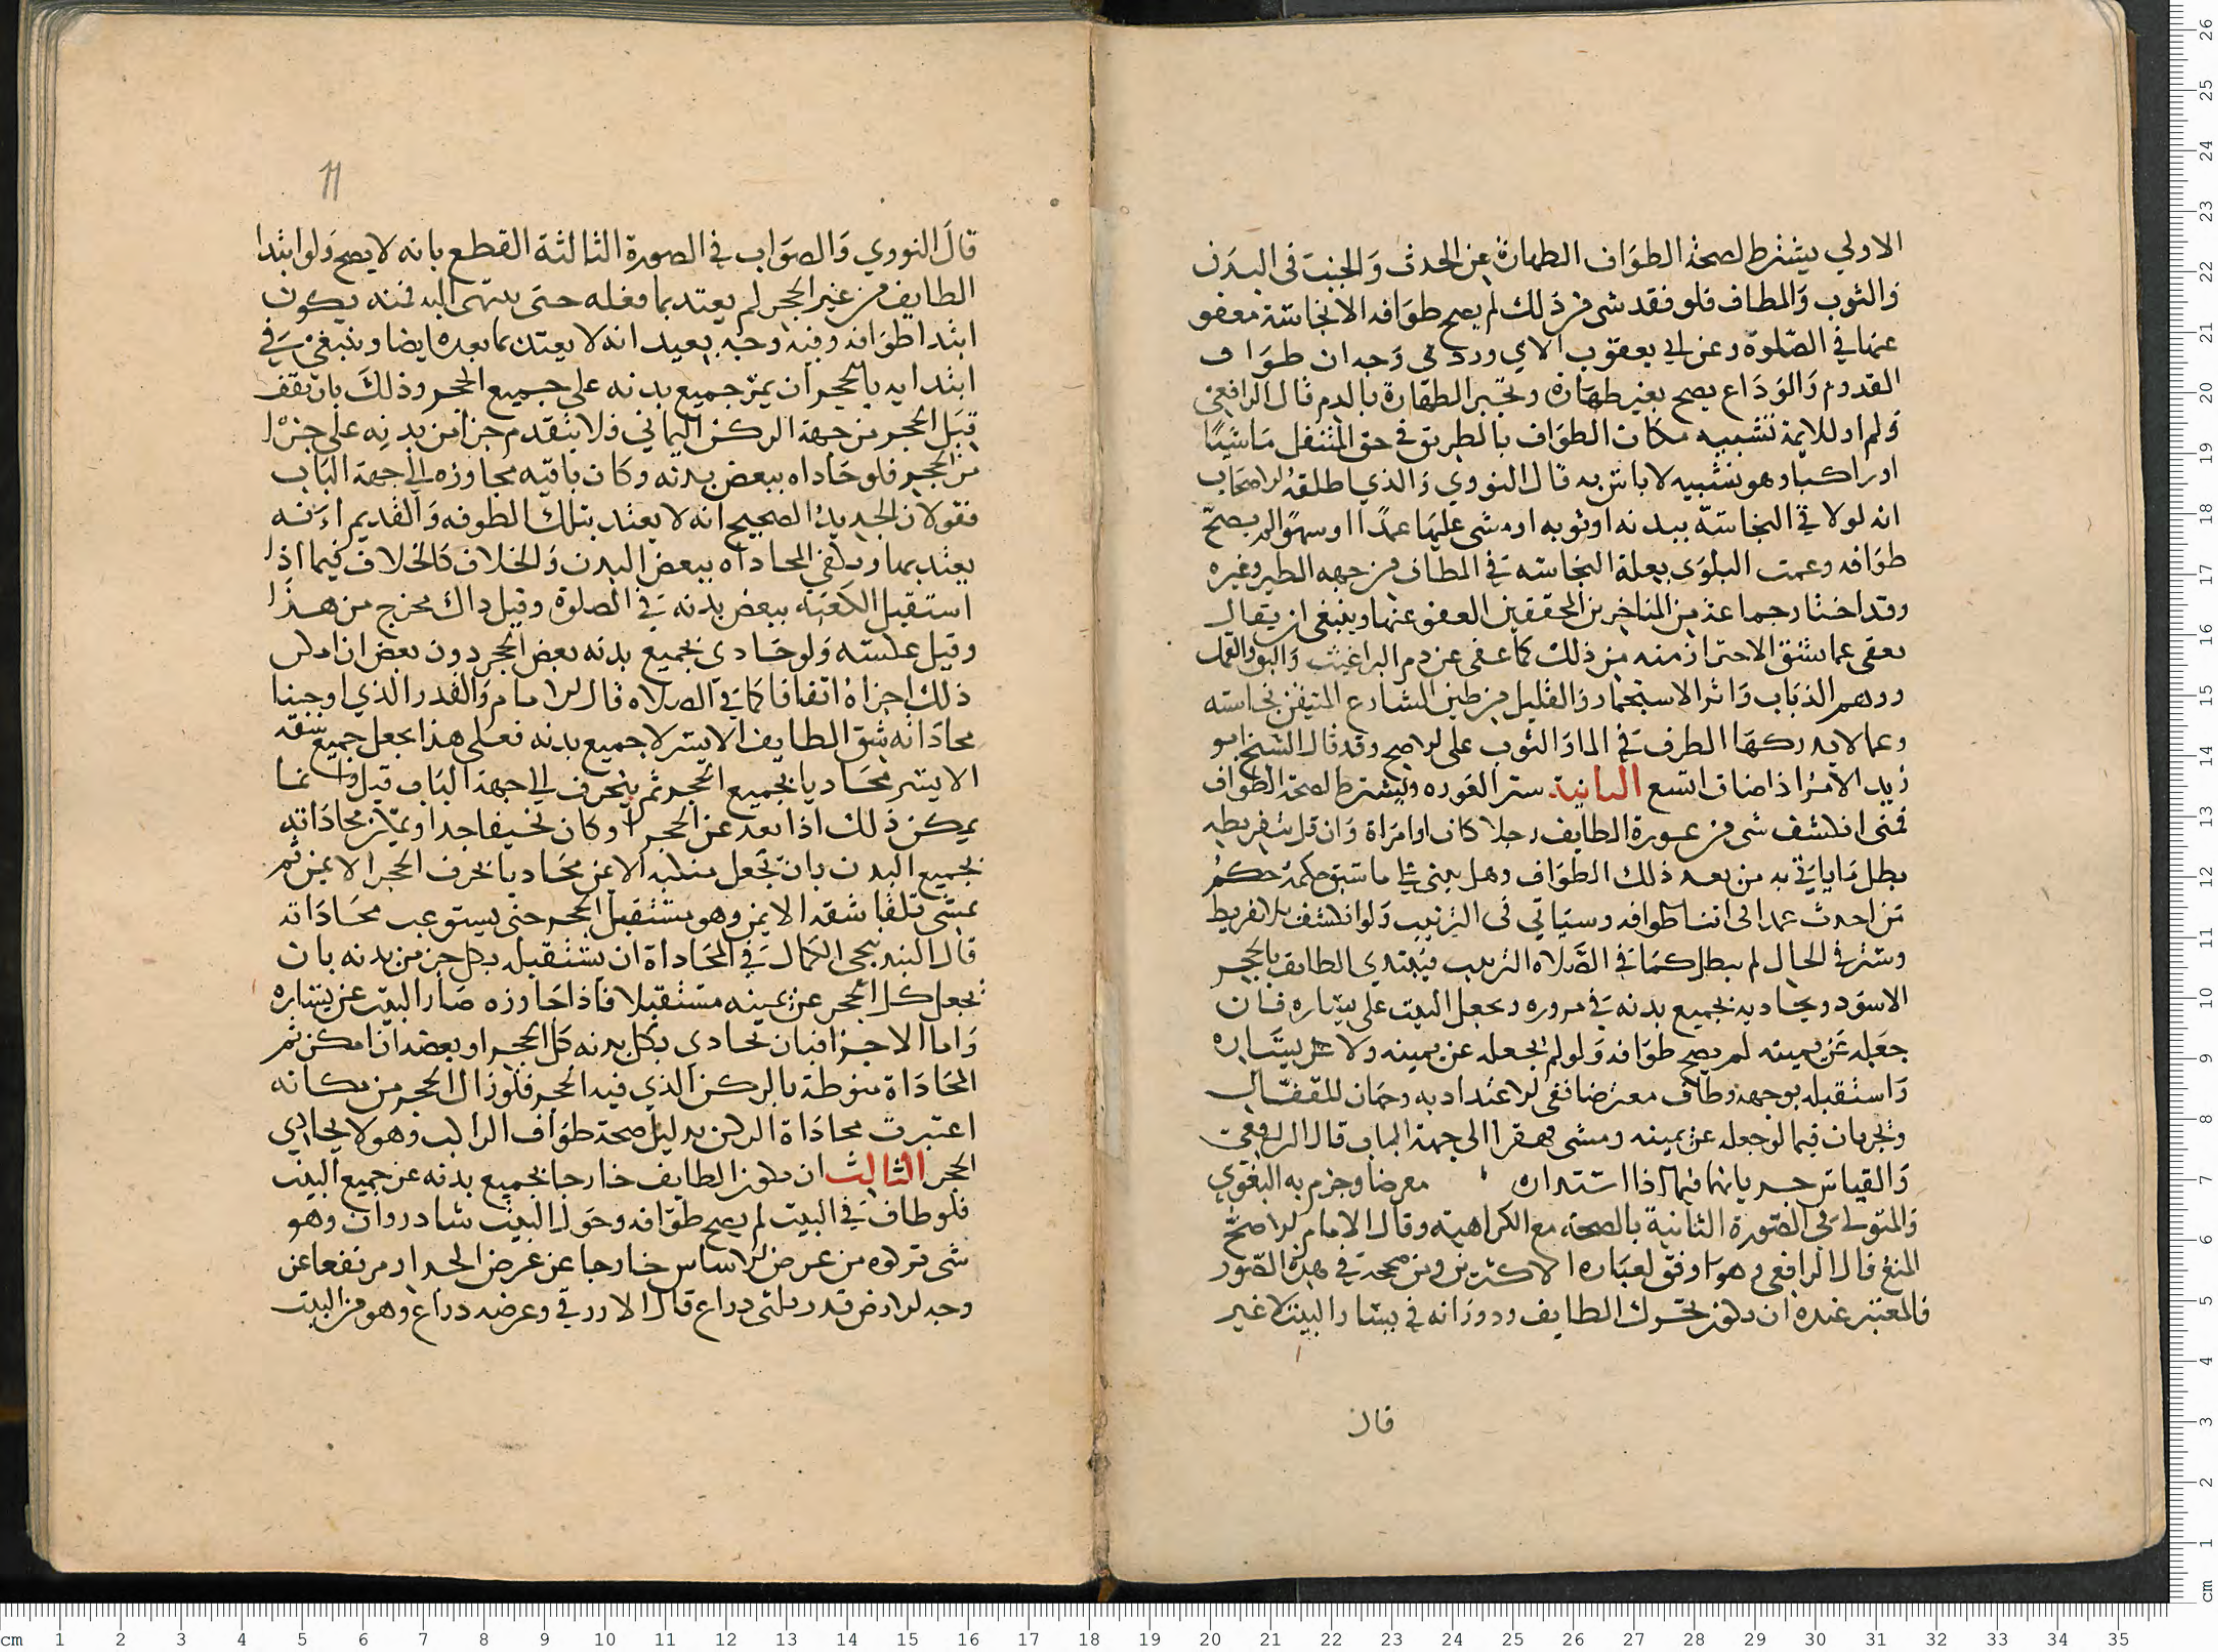 الاولي يشترط لصحة الطواف الطهارة عن الحدث والخبث في البدن
والثوب والمطاف فلو فقد شي من ذلك لم يصح طوافه الا نجاسة معفو
عنها في الصلوة وعن ابي يعقوب الابيوردي وجه ان طواف
القدوم والوداع يصح بغير طهارة وتجبر الطهارة بالدم قال الرافعي
ولم ار للايمة تشبيه مكان الطواف بالطريق في حق المتنفل ماشيا
او راكبا وهو تشبيه لا باس به قال النووي والذي اطلقه الاصحاب
انه لو لاقي النجاسة ببدنه او ثوبه او مشي عليها عمدا او سهوا لم يصح
طوافه وعمت البلوي بعلة النجاسة في المطاف من جهه الطير وغيره
وقد اختار جماعة من المتاخرين المحققين العفو عنها وينبغي ان يقال
يعفي عما شق الاحتراز منه من ذلك كما عفي عن دم البراغيث والبق والقمل
وونيم الذباب واثر الاستجمار والقليل من طين الشارع المتيقن نجاسته
وعما لا يدركها الطرف في الما والثوب علي الاصح وقد قال الشيخ ابو
زيد الامر اذا ضاق اتسع الثانية ستر العوره ويشترط لصحة الطواف
فمتي انكشف شي من عورة الطايف رجلا كان او امراة وان قل بتفريطه
بطل ما ياتي به من بعد ذلك الطواف وهل يبني علي ما سبق حكمه حكم
من احدث عمدا في اثنا طوافه وسياتي في الترتيب ولو انكشف بلا تفريط
وستر في الحال لم يبطل كما في الصلاه الترتيب فيبتدي الطايف بالحجر
الاسود ويحاديه بجميع بدنه في مروره ويجعل البيت علي يساره فان
جعله عن يمينه لم يصح طوافه ولو لم يجعله عن يمينه ولا عن يساره
واستقبله بوجهه وطاف معترضا نفي الاعتداد به وجهان للقفال
ويجريان فيما لو جعله عن يمينه ومشي قهقرا الي جهة الباب قال الرافعي
والقياس جريانهما فيما اذا استدبره معرضا وجزم به البغوي
والمتولي في الصورة الثانية بالصحه مع الكراهية وقال الامام الاصح
المنع قال الرافعي وهو اوفق لعباره الاكثرين ومن صححه في هذه الصور
فالمعتبر عنده ان يكون تحرك الطايف ودورانه في يسار البيت لا غير
قال
11
قال النووي والصواب في الصورة الثالثة القطع بانه لا يصح ولو ابتدا
الطايف من غير الحجر لم يعتد بما فعله حتي ينتهي اليه فمنه يكون
ابتدا طوافه وفيه وجه بعيد انه لا يعتد بما بعده ايضا وينبغي في
ابتدايه بالحجر ان يمر جميع بدنه علي جميع الحجر وذلك بان يقف
قبل الحجر من جهة الركن اليماني فلا يتقدم جزا من بدنه علي جزا
من الحجر فلو حاداه ببعض بدنه وكان باقيه مجاوزه الي جهة الباب
فقولان الجديد الصحيح انه لا يعتد بتلك الطوفه والقديم انه
يعتد بها وتكفي المحاداه ببعض البدن والخلاف كالخلاف فيما اذا
استقبل الكعبه ببعض بدنه في الصلوة وقيل ذاك مخرج من هذا
وقيل عكسته ولو حادي بجميع بدنه بعض الحجر دون بعض ان امكن
ذلك اجزاه اتفاقا كما في الصلاه قال الامام والقدر الذي اوجبنا
محاداته شق الطايف الايسر لا جميع بدنه فعلي هذا يجعل جميع شقه
الايسر محاديا بجميع الحجر ثم ينحرف الي جهة الباب قيل وانما
يمكن ذلك اذا بعد عن الحجر او كان نحيفا جدا ويمكن محاداته
بجميع البدن بان يجعل منكبه الايمن محاديا بحرف الحجر الايمن ثم
يمشي تلقا شقه الايمن وهو مستقبل الحجر حتي يستوعب محاداته
قال البندنيجي الكمال في المحاداة ان يستقبله بكل جزء من بدنه بان
يجعل كل الحجر عن يمينه مستقبلا فاذا حاوزه صار البيت عن يساره
واما الاجزا فبان تحادي بكل بدنه كل الحجر او بعضه ان امكن ثم
المحاداة منوطة بالركن الذي فيه الحجر فلو زال الحجر من مكانه
اعتبرت محاداة الركن بدليل صحة طواف الراكب وهو لا يحادي
الحجر الثالث ان يكون الطايف خارجا بجميع بدنه عن جميع البيت
فلو طاف في البيت لم يصح طوافه وحول البيت شادروان وهو
شي تركوه من عرض الاساس خارجا عن عرض الجدار مرتفعا عن
وجه الارض قدر ثلثي دراع قال الازرقي وعرضه دراع وهو من البيت